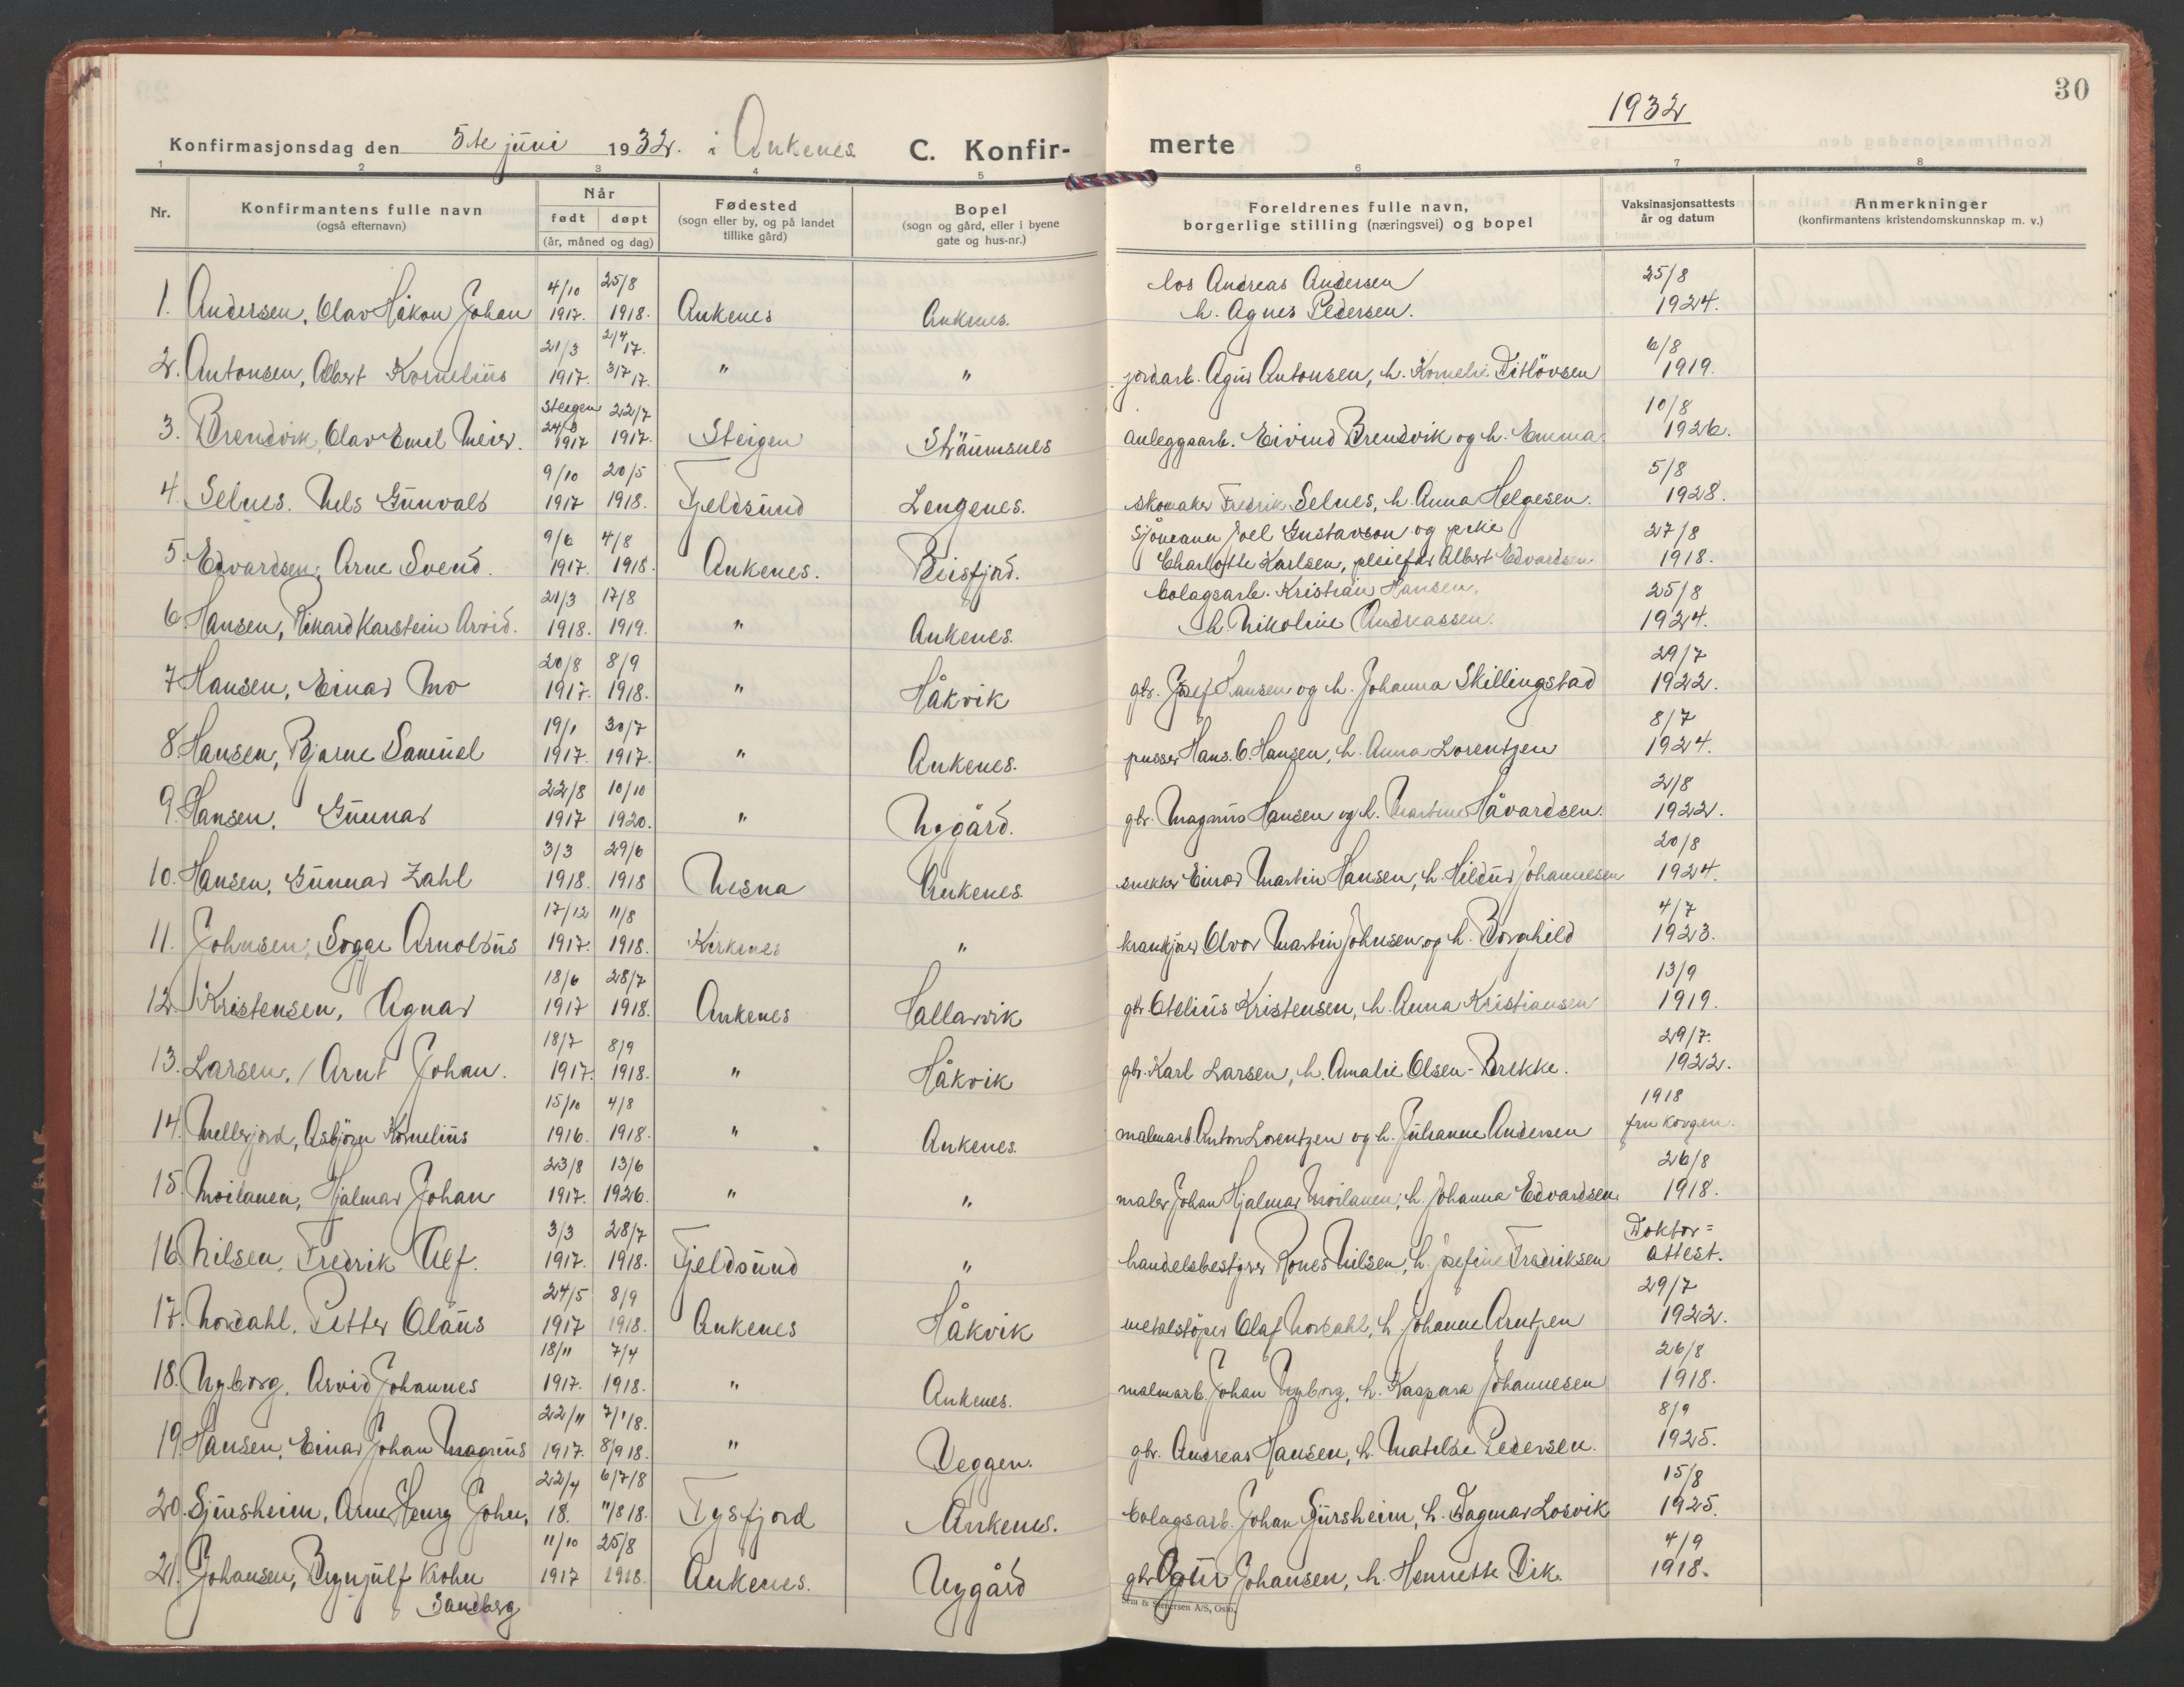 30
1932
Konfirmasjonsdag den 5te juni 1932. i Ankenes C. Konfir-merte
1 2 3 4 5 6 7 8
Nr. Konfirmantens fulle navn (også efternavn) Når født døpt (år, måned og dag) Fødested (sogn eller by, og på landet tillike gård) Bopel (sogn og gård, eller i byene gate og hus-nr.) Foreldrenes fulle navn, borgerlige stilling (næringsvei) og bopel Vaksinasjonsattests år og datum Anmerkninger (konfirmantens kristendomskunnskap m. v.)
1. Andersen, Olav Håkon Johan 4/10 1917. 25/8 1918. Ankenes Ankenes. los Andreas Andersen h. Agnes Pedersen. 25/8 1924.
2. Antonsen, Albert Kornelius 21/3 1917. 2/4 17. 3/7 17. " " jordarb. Agin Antonsen, h. Kornelie Ditlövsen 6/8 1919.
3. Brendvik, Olav Emil Meier. Steigen 24/3 1917 22/7 1917. Steigen Sträumsnes anleggsarb. Eivind Brendvik og h. Emma. 10/8 1926.
4. Selnes. Nils Gunvald 9/10 1917 20/5 1918. Fjeldsund Lengenes. skomaker Fredrik Selnes, h. Anna Helgesen. 5/8 1928.
5. Edvardsen, Arne Svend. 9/6 1917. 4/8 1918. Ankenes. Beisfjord. Sjömann Joel Gustavson og pike Charlotte Karlsen, pleiefar Albert Edvardsen 27/8 1918.
6. Hansen, Rikard Karstein Arvid. 21/3 1918. 17/8 1919. " Ankenes. bolagsarb. Kristian Hansen, h. Nikoline Andreassen. 25/8 1924.
7. Hansen, Einar Mo 20/8 1917. 8/9 1918. " Håkvik gbr. Josef Hansen og h. Johanna Skillingstad 29/7 1922.
8. Hansen, Bjarne Samuel 19/1 1917. 30/7 1917. " Ankenes. pusser Hans. O. Hansen, h. Anna Lorentzen 8/7 1924.
9. Hansen, Gunnar 22/8 1917 10/10 1920. " Nygård. gbr. Magnus Hansen og h. Martine Håvardsen. 2/8 1922.
10. Hansen, Gunnar Zahl 3/3 1918. 29/6 1918 Nesna Ankenes. snekker Einar Martin Hansen, h. Hildur Johannesen 20/8 1924.
11. Johnsen, Sogge Arnoldus 17/12 1917. 11/8 1918. Kirkenes " krankjörer Alvor Martin Johnsen og h. Borghild 4/7 1923.
12. Kristensen, Agnar 18/6 1917 28/7 1918. Ankenes Hallarvik gbr. Otelius Kristensen, h. Anna Kristiansen 13/9 1919.
13. Larsen, Arnt Johan. 18/7 1917. 8/9 1918. " Håkvik gbr. Karl Larsen, h. Amalie Olsen-Brekke. 29/7. 1922.
14. Mellerjord, Asbjörn Kornelius 15/10 1916. 4/8 1918. " Ankenes. malmarb. Anton Lorentzen og h. Julianne Andersen 1918 fru Korgen.
15. Moilanen, Hjalmar Johan 23/8 1917. 13/6 1926. " " maler Johan Hjalmar Moilanen, h. Johanna Edvardsen. 26/8 1918.
16. Nilsen, Fredrik Alf. 3/3 1917. 28/7 1918. Fjeldsund " handelsbestyrer Rones Nilsen, h. Josefine Fredriksen Doktor=attest.
17. Nordahl, Petter Olaus 24/5 1917 8/9 1918. Ankenes Håkvik metalstöper Olaf Nordahl, h Johanne Arntzen 29/7 1922.
18. Nyborg. Arvid Johannes 18/11 1917. 7/4 1918. " Ankenes. malmarb. Johan Nyborg, h. Kaspara Johannesen 26/8 1918.
19. Hansen, Einar Johan Magnus 22/11 1917. 7/1 18. 8/9 18. " Veggen. gbr. Andreas Hansen, h. Matilde Pedersen. 8/9 1925.
20. Sjursheim, Arne Henry John, 22/4 18. 6/7/8 11/8 18. Tysfjord Ankenes. bolagsarb. Johan Sjursheim, h. Dagmar Losvik 15/8 1925.
21. Johansen, Brynjulf Krohn Sandberg 11/10 1917 25/8 1918. Ankenes. Nygård gbr Johansen, h. Henriette Vik. 4/9 1918.
Sem & Stenersen A/S, Oslo.